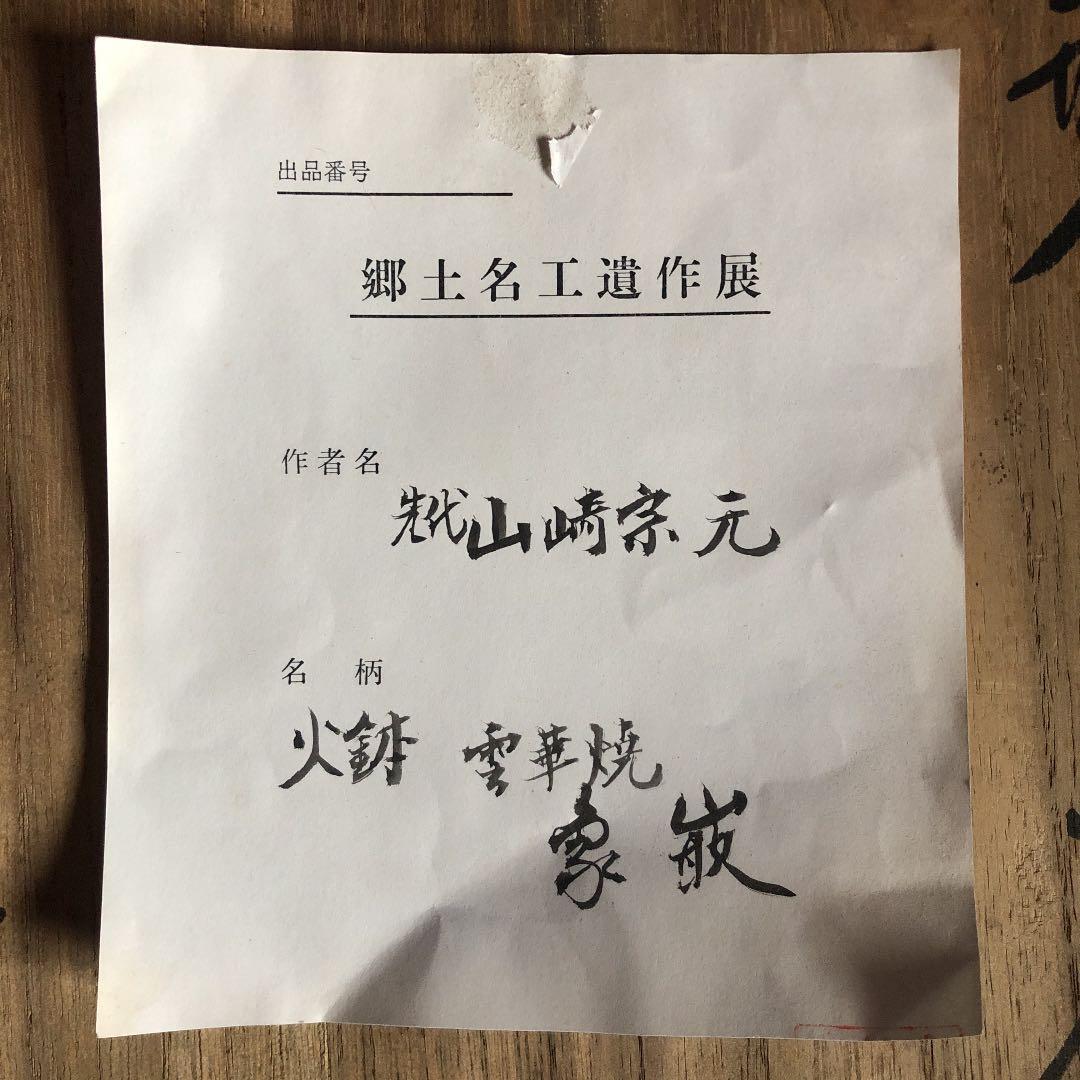 出品番号
郷土名工遺作展
作者名
先代山崎宗元
名柄
火鉢 雲華焼
象嵌